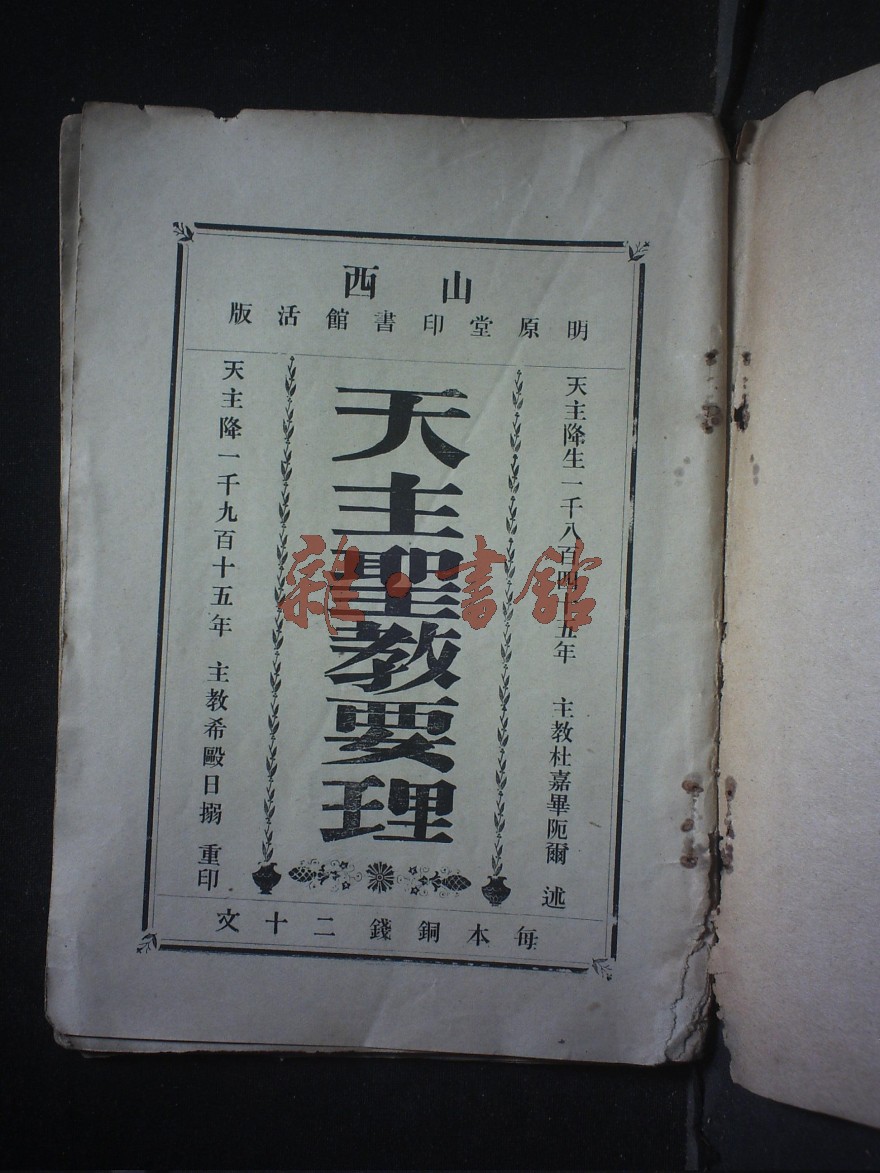 山西
明原堂印書館活版
天主降生一千八百四十五年 主教杜嘉畢阨爾 述
天主聖教要理
天主降一千九百十五年 主教希毆日搦 重印
每本銅錢二十文
雜·書館